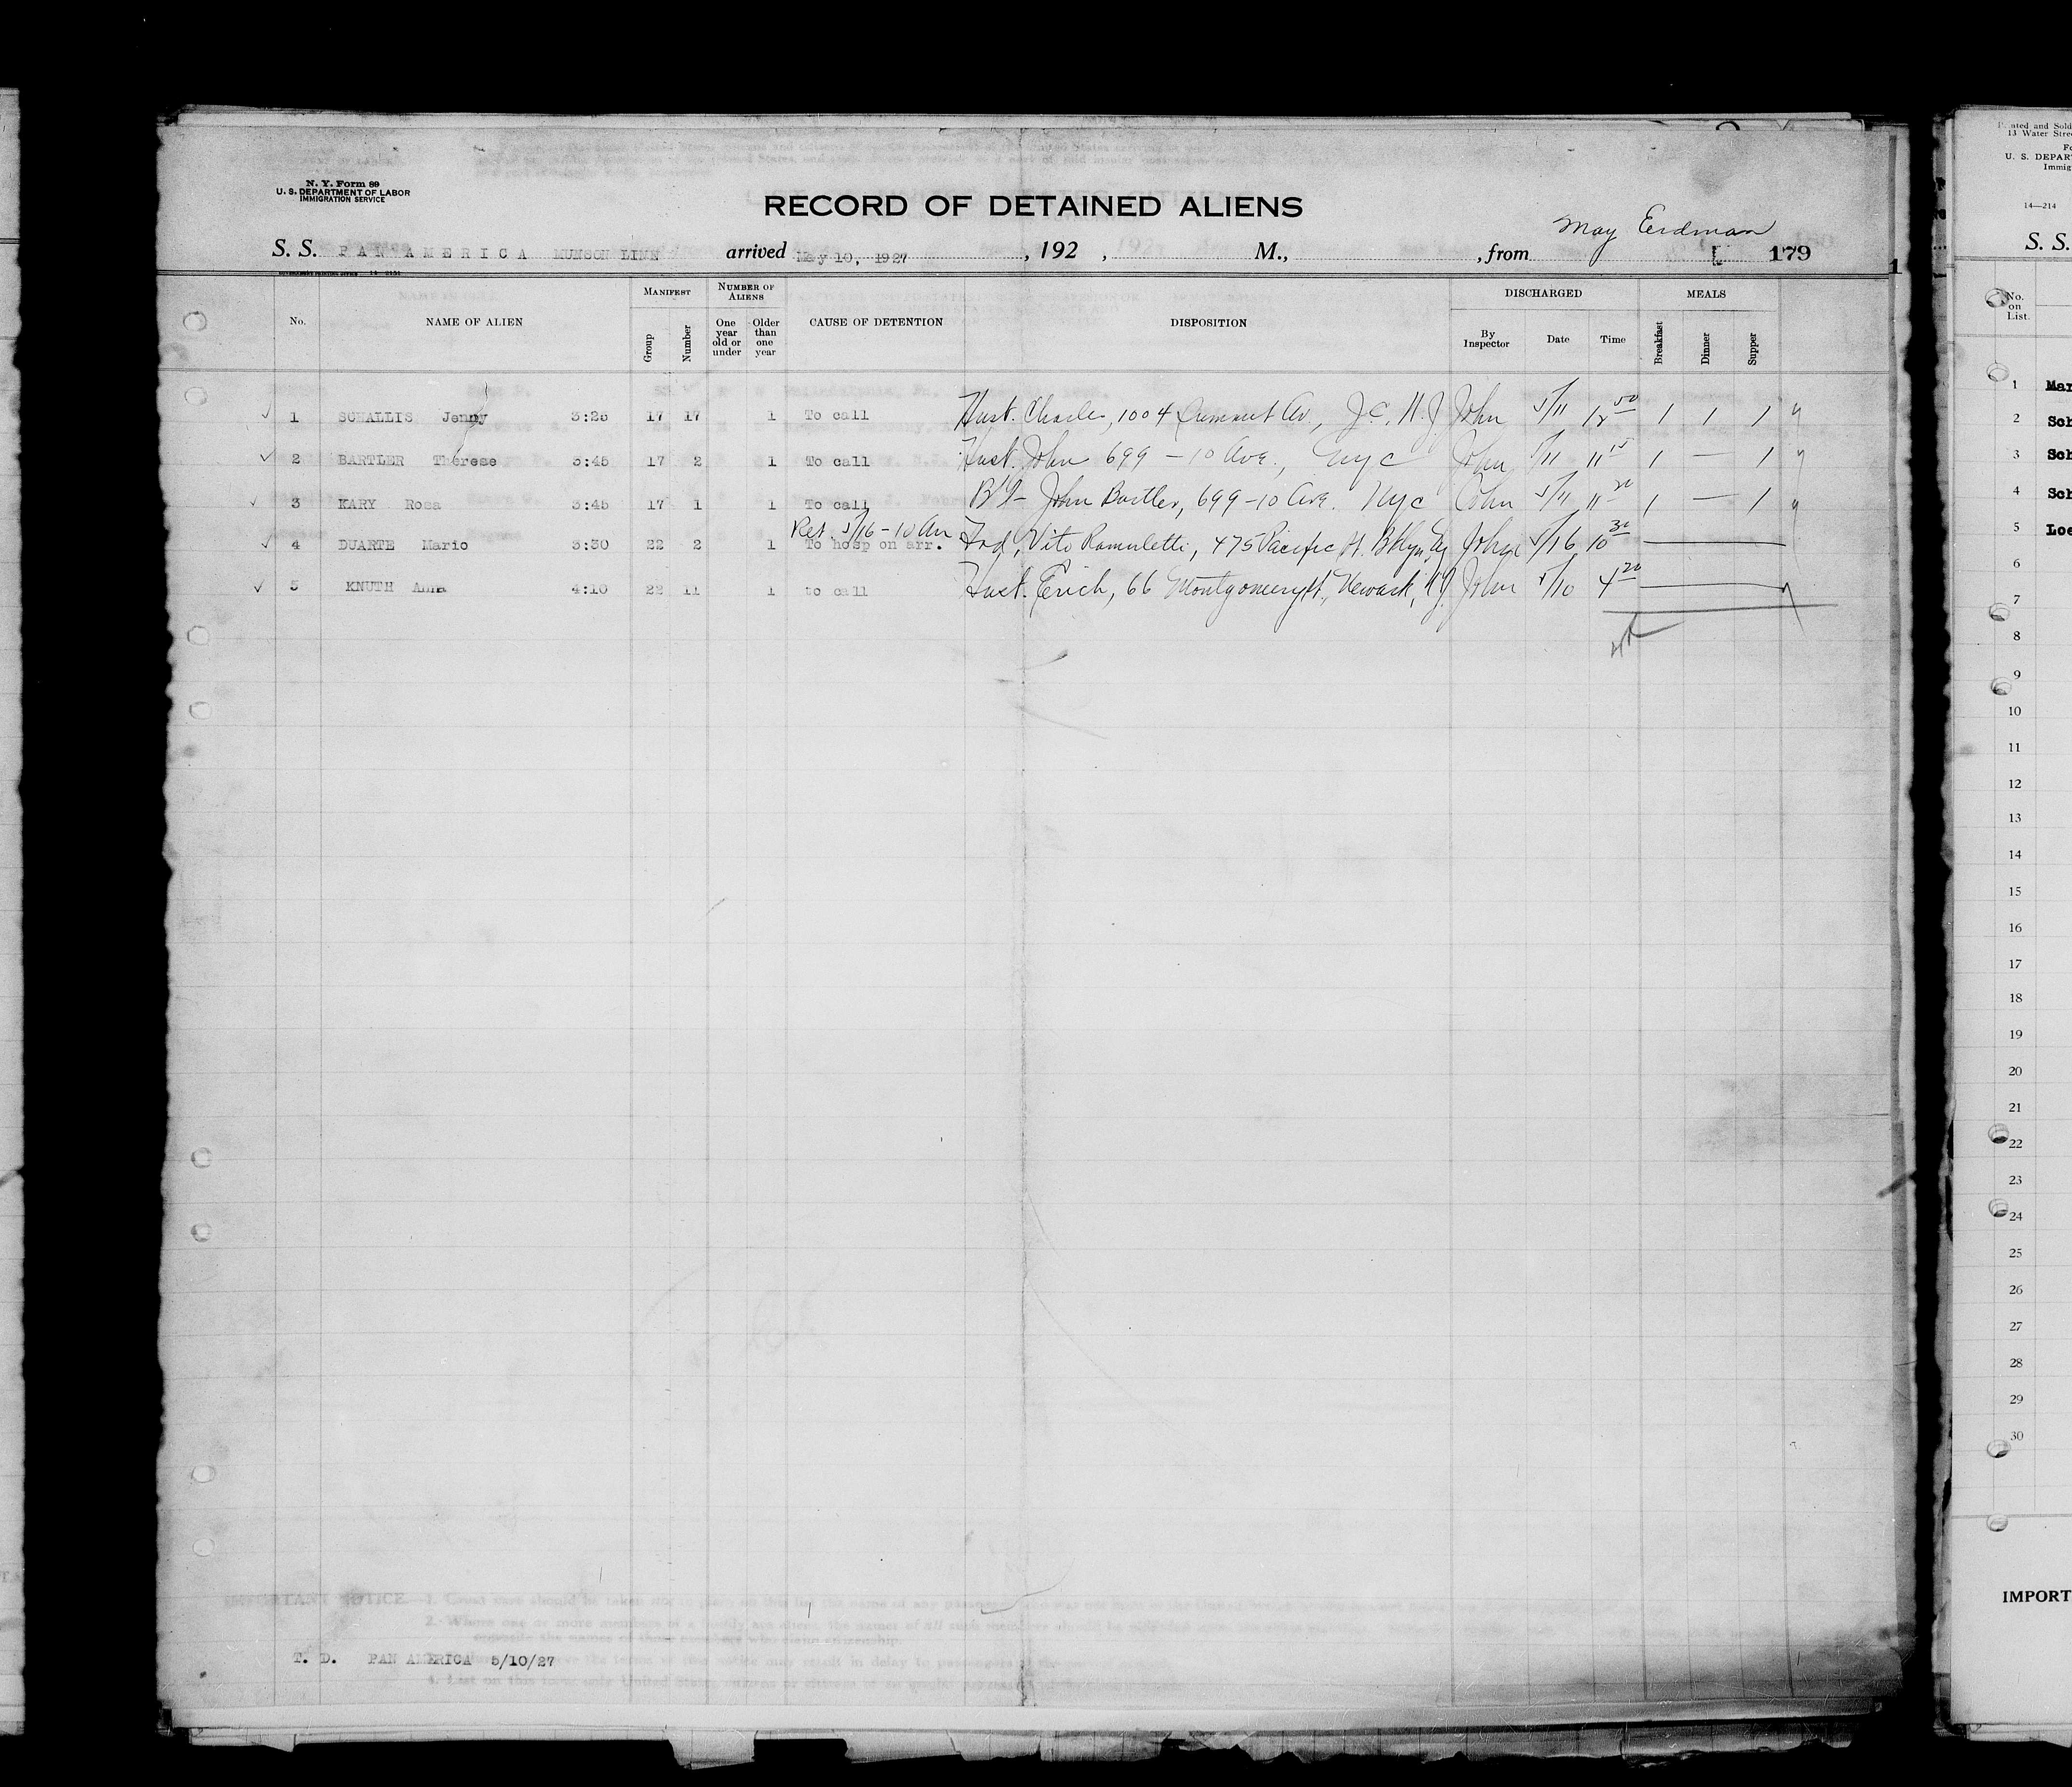 N. Y. Form 89
U. S. DEPARTMENT OF LABOR
IMMIGRATION SERVICE
RECORD OF DETAINED ALIENS
May Erdman
S. S. PAN AMERICA MUNSON LINE arrived May 10, 1927, 192 , M., , from 179
No. NAME OF ALIEN MANIFEST Group Number NUMBER OF ALIENS One year old or under Older than one year CAUSE OF DETENTION DISPOSITION DISCHARGED By Inspector Date Time MEALS Breakfast Dinner Supper
1 SCHALLIS Jenny 3:25 17 17 1 To call Husb. Charles, 1004 Av., J.C. N.J. John 5/11 12 50 1 1 1
2 BARTLER Therese 3:45 17 2 1 To call Husb. John 699 - 10 Ave., NYC John 5/11 11 15 1 — 1
3 KARY Rosa 3:45 17 1 1 To call B/L John Bartler, 699-10 Ave. NYC John 5/11 11 20 1 — 1
Ret. 5/16 - 10 AM
4 DUARTE Mario 3:30 22 2 1 To hosp on arr. Frd, Vito Romuletti, 475 Pacific St. Bklyn, NY John 5/16 10 30
5 KNUTH Anna 4:10 22 11 1 to call Husb. Erich, 66 Montgomery St, Newark, NJ. John 5/10 4 20
T. D. PAN AMERICA 5/10/27
13 Water
U. S. DEPAR
Immig
14—214
S. S.
No. on List.
1 Mar
2 Sch
3 Sch
4 Sch
5 Loe
6
7
8
9
10
11
12
13
14
15
16
17
18
19
20
21
22
23
24
25
26
27
28
29
30
IMPORT